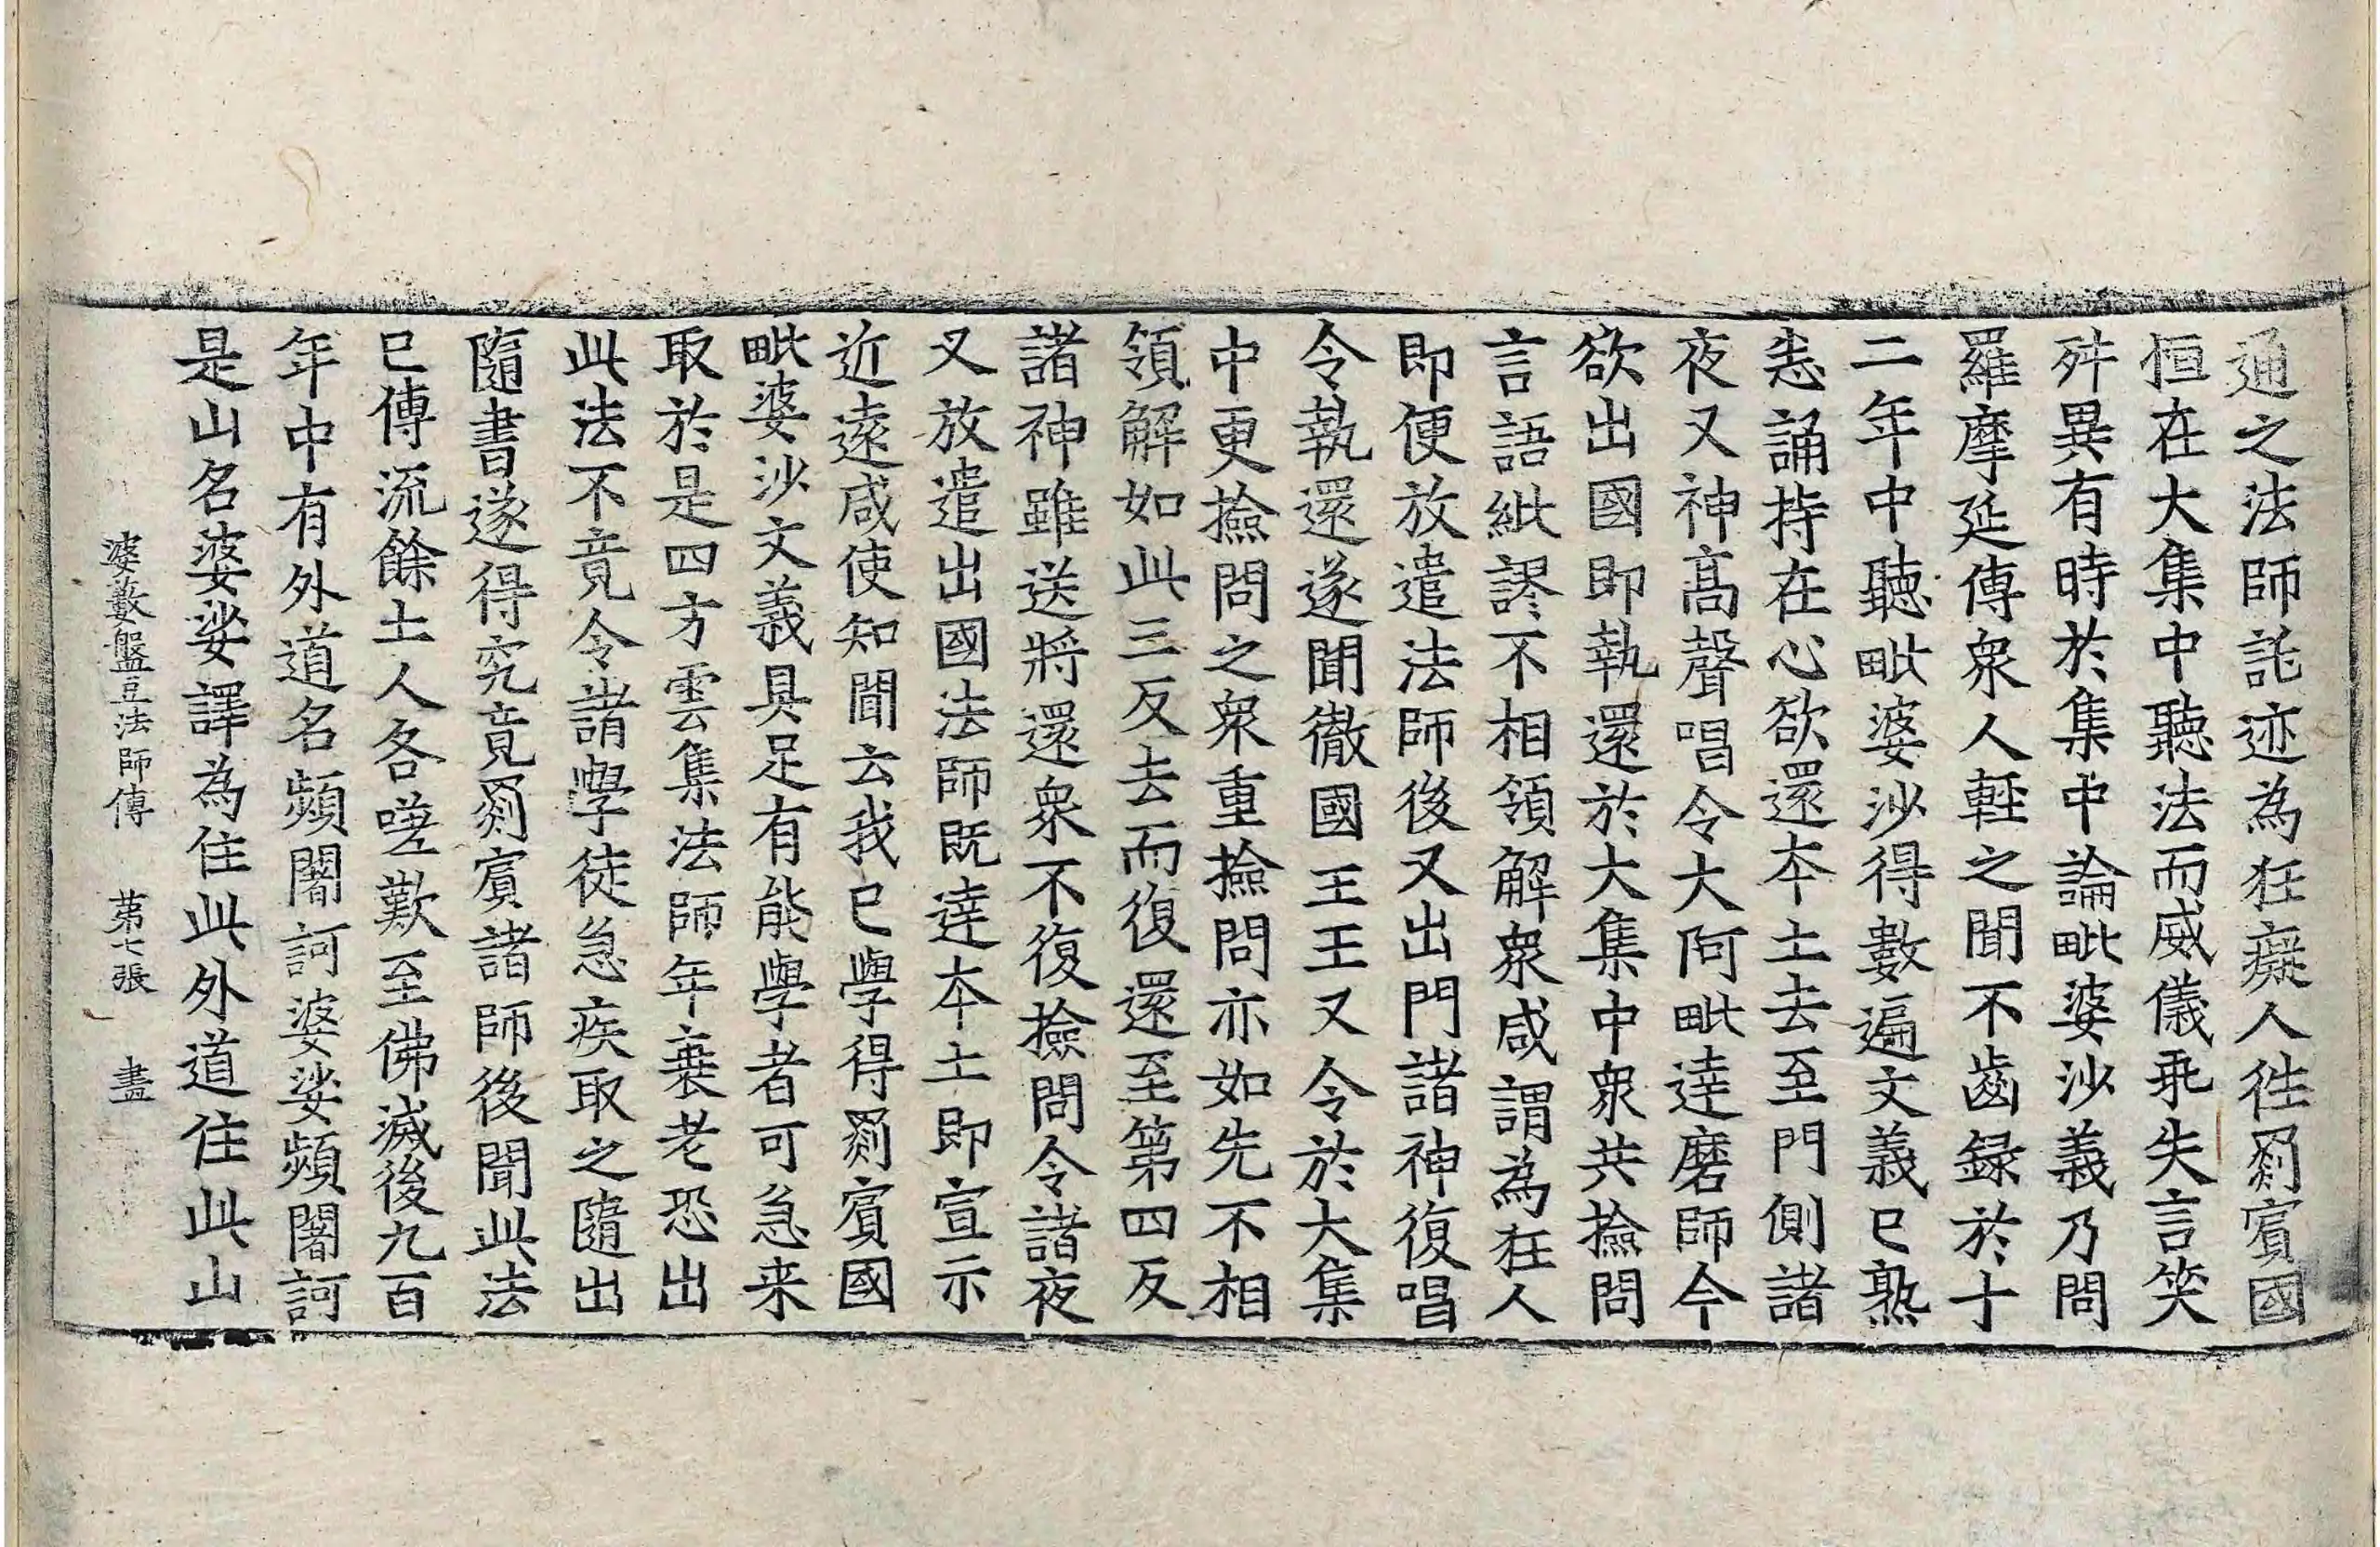 通之法師託迹為狂癡人徃罽賓國
恒在大集中聽法而威儀乖失言笑
舛異有時於集中論毗婆沙義乃問
羅摩延傳衆人輕之聞不齒録於十
二年中聽毗婆沙得數遍文義已熟
悉誦持在心欲還本土去至門側諸
夜叉神髙聲唱令大阿毗達磨師今
欲出國即執還於大集中衆共撿問
言語紕謬不相領解衆咸謂為狂人
即便放遣法師後又出門諸神復唱
令執還遂聞徹國王王又令於大集
中更撿問之衆重撿問亦如先不相
領解如此三反去而復還至第四反
諸神雖送將還衆不復撿問令諸夜
叉放遣出國法師既達本土即宣示
近遠咸使知聞云我已學得罽賓國
毗婆沙文義具足有能學者可急来
取於是四方雲集法師年衰老恐出
此法不竟令諸學徒急疾取之隨出
隨書遂得究竟罽賓諸師後聞此法
已傳流餘土人各嗟歎至佛滅後九百
年中有外道名頻闍訶婆娑頻闍訶
是山名婆娑譯為住此外道住此山
婆藪盤豆法師傳 第七張 盡